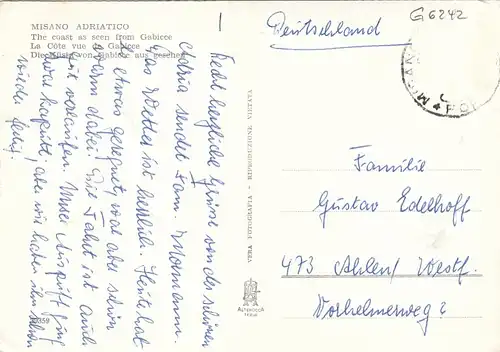 MISANO ADRIATICO
The coast as seen from Gabicce
La Côte vue de Gabicce
Die Küste von Gabicce aus gesehen
Recht herzliche Grüsse von der schönen
Adria sendet Fam.
Das Wetter ist herrlich. Heute hat
es etwas geregnet, war aber schön
warm dabei. Die Fahrt ist auch
gut verlaufen. Unser Auspuff ging
zwar kaputt, aber wir haben ihn schon
wieder
VERA FOTOGRAFIA - RIPRODUZIONE VIETATA
Deutschland
G6242
Familie
Gustav Edelhoff
473 Ahlen/Westf.
Vorhelmerweg 2